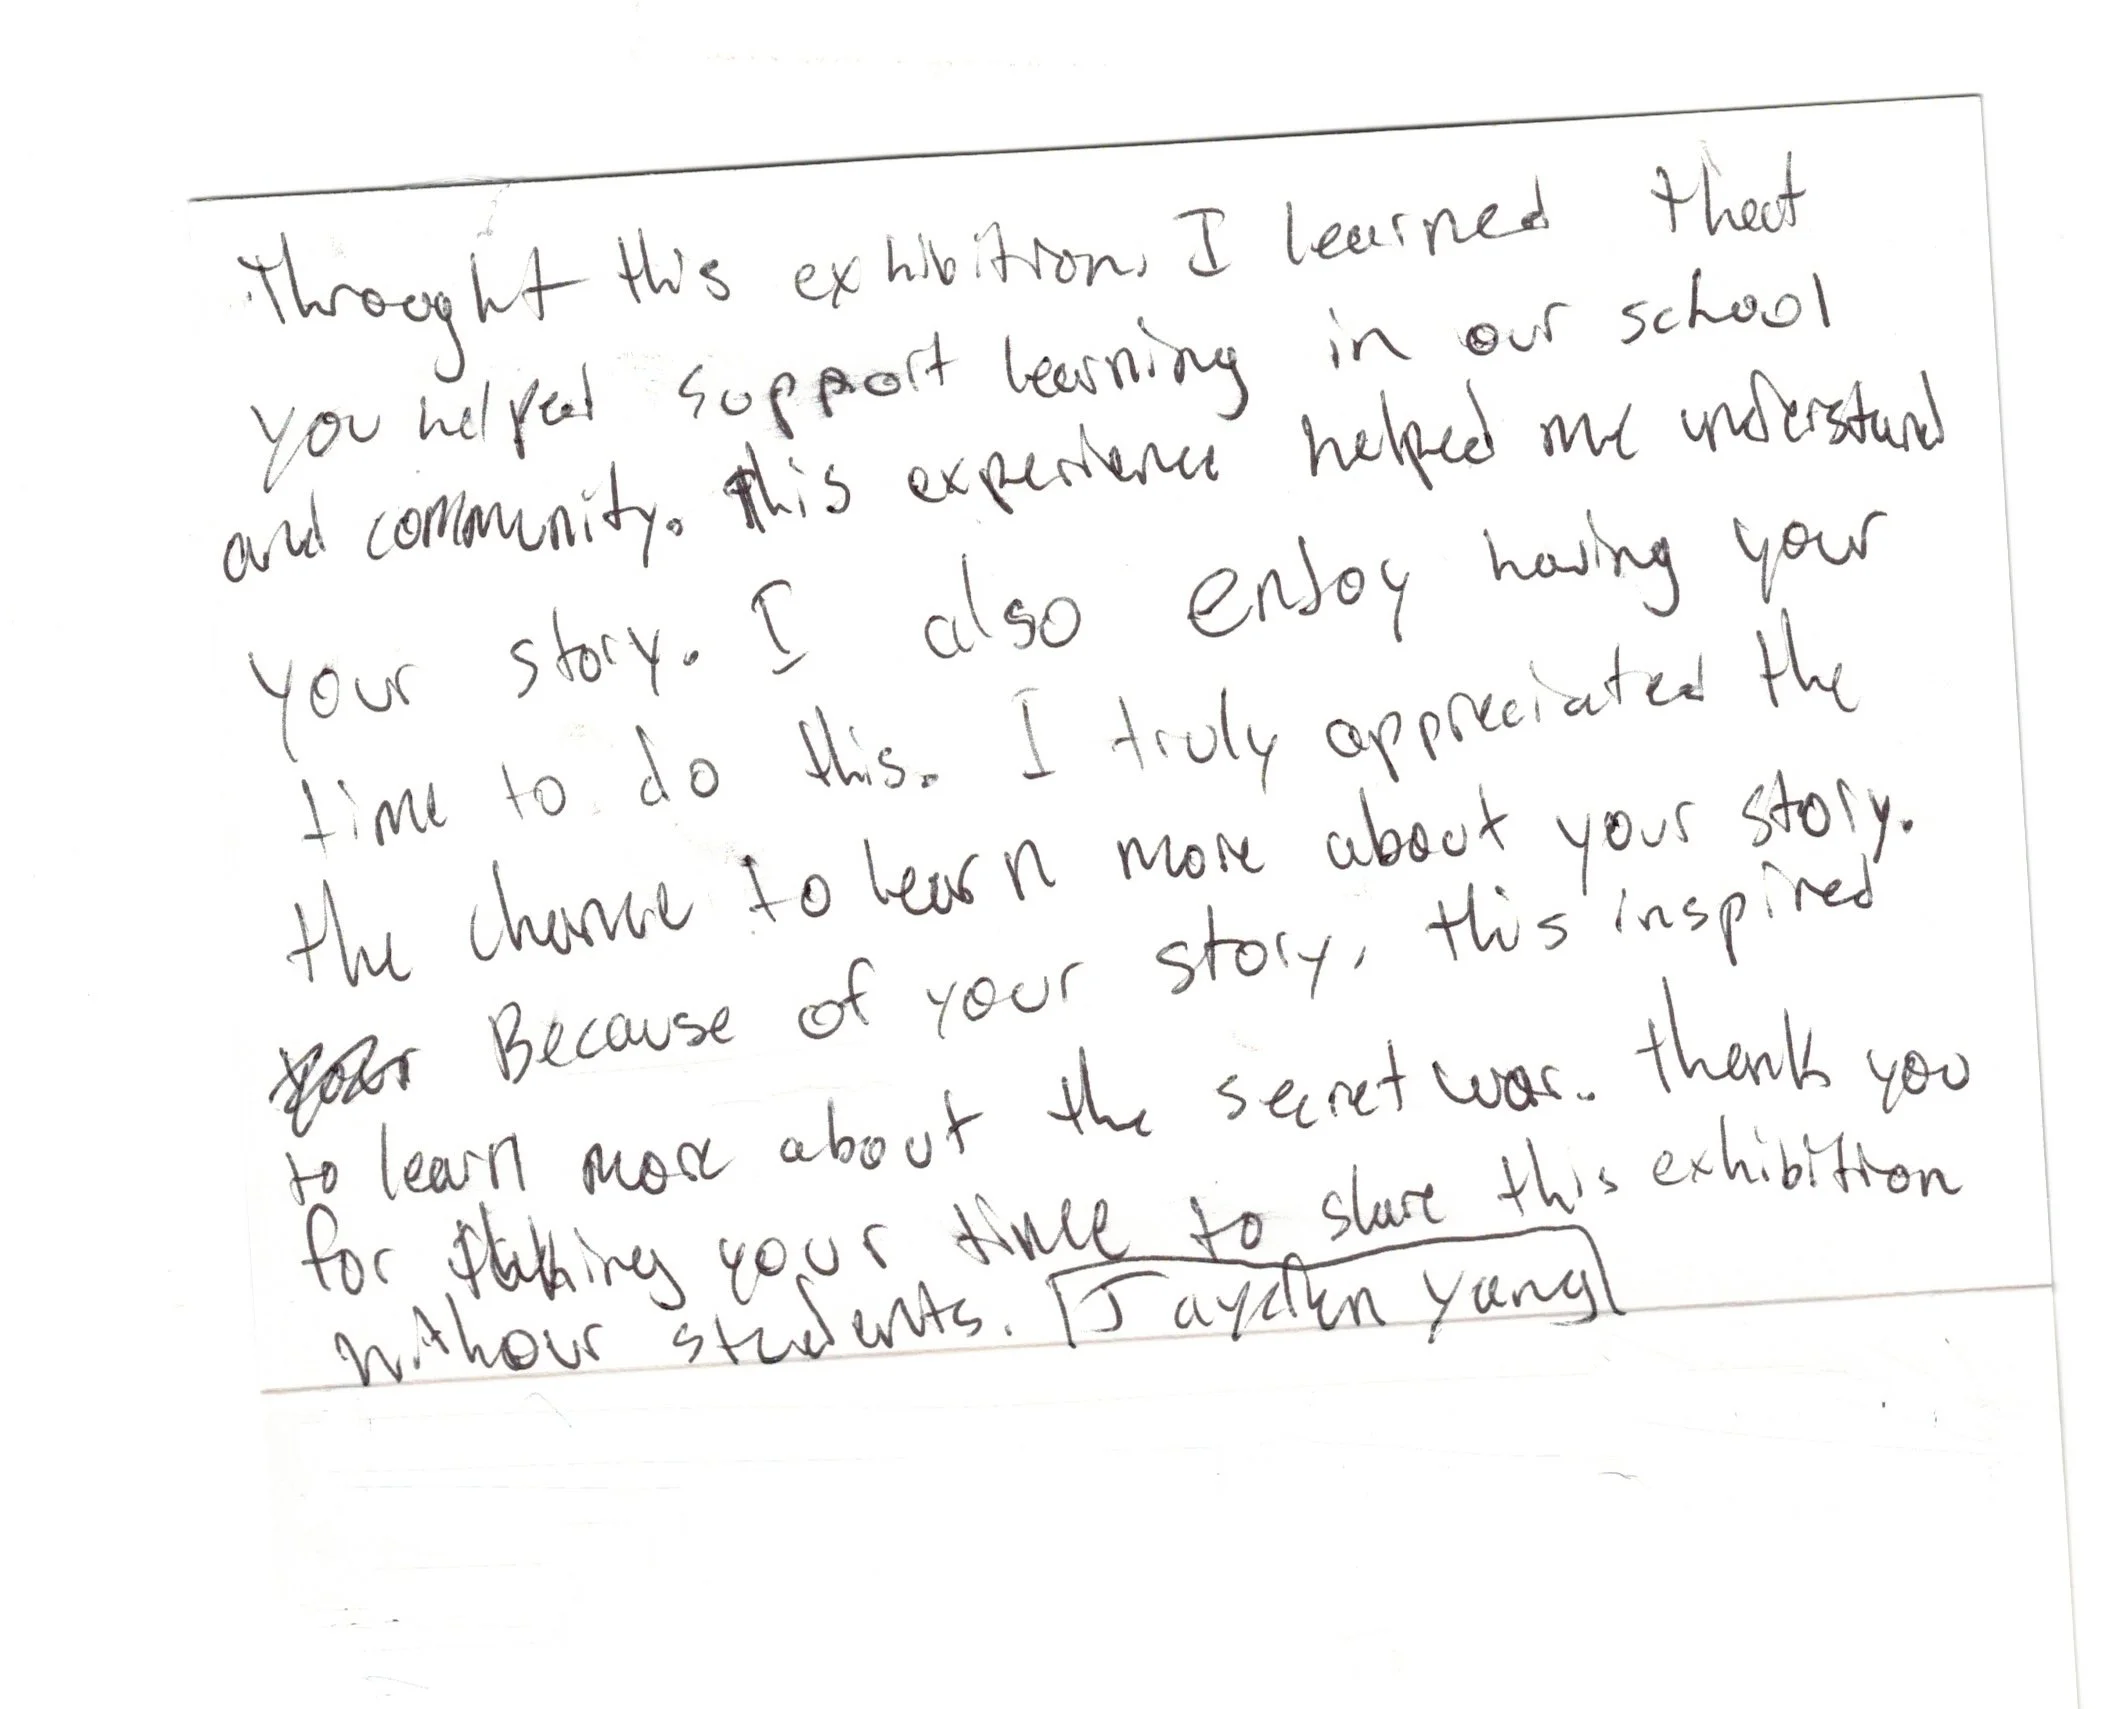 Throught this exhibition, I learned that
you helped support learning in our school
and community. this experience helped me understand
your story. I also enjoy having your
time to do this. I truly appreciated the
the chance to learn more about your story.
Because of your story, this inspired
to learn more about the secret war. thank you
for taking your time to share this exhibition
with our students. Jayden Yang